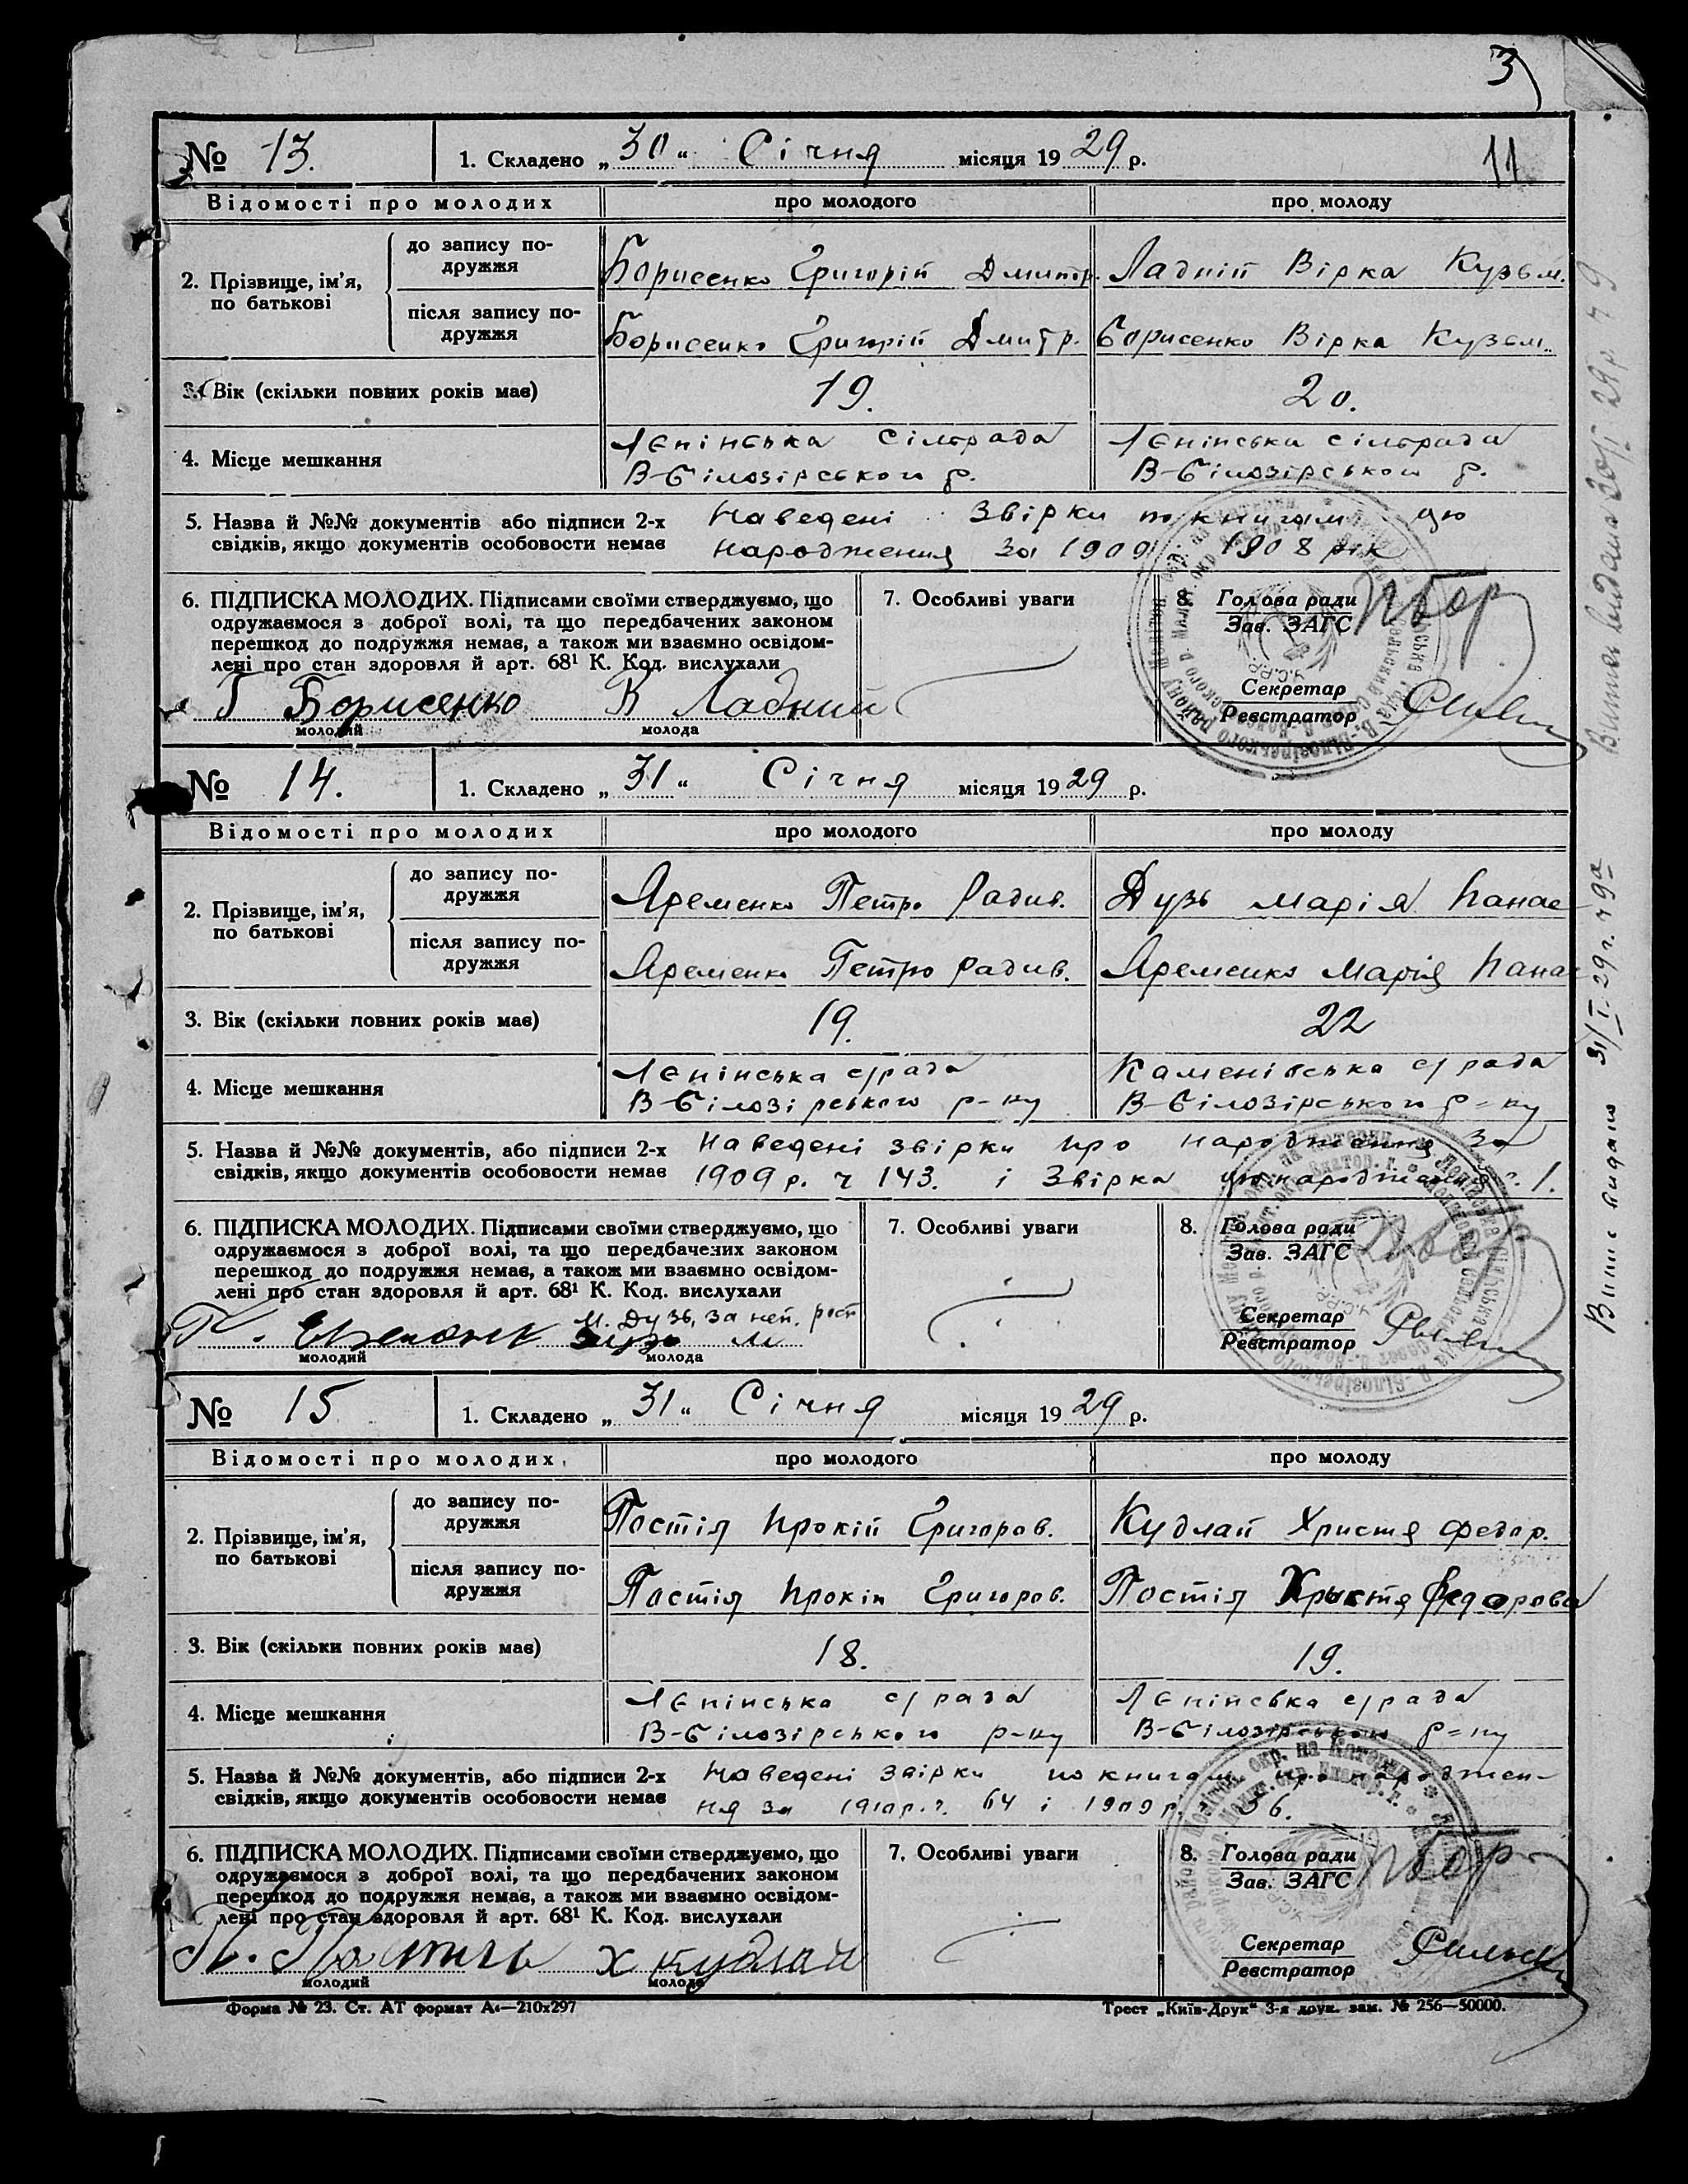 3
11
№ 13. 1. Складено „30“ Січня місяця 1929 р.
Відомості про молодих про молодого про молоду
2. Прізвище, ім'я, по батькові
до запису подружжя Борисенко Григорій Дмитр. Ладній Вірка Кузьм.
після запису подружжя Борисенко Григорій Дмитр. Борисенко Вірка Кузьм.
3. Вік (скільки повних років має) 19. 20.
4. Місце мешкання
Ленінська сільрада Ленінська сільрада
В-Білозірського р. В-Білозірського р.
5. Назва й №№ документів або підписи 2-х Наведені звірки по книгам
свідків, якщо документів особовости немає народження за 1909 1908 рік
6. ПІДПИСКА МОЛОДИХ. Підписами своїми стверджуємо, що 7. Особливі уваги 8. Голова ради
одружаємося з доброї волі, та що передбачених законом Зав. ЗАГС
перешкод до подружжя немає, а також ми взаємно освідом-
лені про стан здоровля й арт. 68¹ К. Код. вислухали Секретар
Г Борисенко В Ладний Реєстратор
молодий молода
№ 14. 1. Складено „31“ Січня місяця 1929 р.
Відомості про молодих про молодого про молоду
2. Прізвище, ім'я, по батькові
до запису подружжя Яременко Петро Радив. Дузь Марія Панас
після запису подружжя Яременко Петро Радив. Яременко Марія Панас
3. Вік (скільки повних років має) 19. 22
4. Місце мешкання
Ленінська с/рада Каменівська с/рада
В-Білозірського р-ну В-Білозірського р-ну
5. Назва й №№ документів, або підписи 2-х Наведені звірки про народження за
свідків, якщо документів особовости немає 1909 р. ч 143. і звірка народження
6. ПІДПИСКА МОЛОДИХ. Підписами своїми стверджуємо, що 7. Особливі уваги 8. Голова ради
одружаємося з доброї волі, та що передбачених законом Зав. ЗАГС
перешкод до подружжя немає, а також ми взаємно освідом-
лені про стан здоровля й арт. 68¹ К. Код. вислухали Секретар
М. Дузь, за неп. Реєстратор
молодий молода
№ 15 1. Складено „31“ Січня місяця 1929 р.
Відомості про молодих про молодого про молоду
2. Прізвище, ім'я, по батькові
до запису подружжя Постія Прокіп Григоров. Кудлай Христя Федор.
після запису подружжя Постія Прокіп Григоров. Постія Хрыстя Федорова
3. Вік (скільки повних років має) 18. 19.
4. Місце мешкання
Ленінська с/рада Ленінська с/рада
В-Білозірського р-ну В-Білозірського р-ну
5. Назва й №№ документів, або підписи 2-х Наведені звірки по книгам про народжен-
свідків, якщо документів особовости немає ня за 1910 р. ч. 64 і 1909 р. 56.
6. ПІДПИСКА МОЛОДИХ. Підписами своїми стверджуємо, що 7. Особливі уваги 8. Голова ради
одружаємося з доброї волі, та що передбачених законом Зав. ЗАГС
перешкод до подружжя немає, а також ми взаємно освідом-
лені про стан здоровля й арт. 68¹ К. Код. вислухали Секретар
Х Кудлай Реєстратор
молодий молода
Форма № 23. Ст. АТ формат А₄—210х297 Трест „Київ-Друк“ 3-я друк. зам. № 256—50000.
Витяг видано 30/I 29 р ч 9
Витяг видано 31/I-29 г. ч 9а